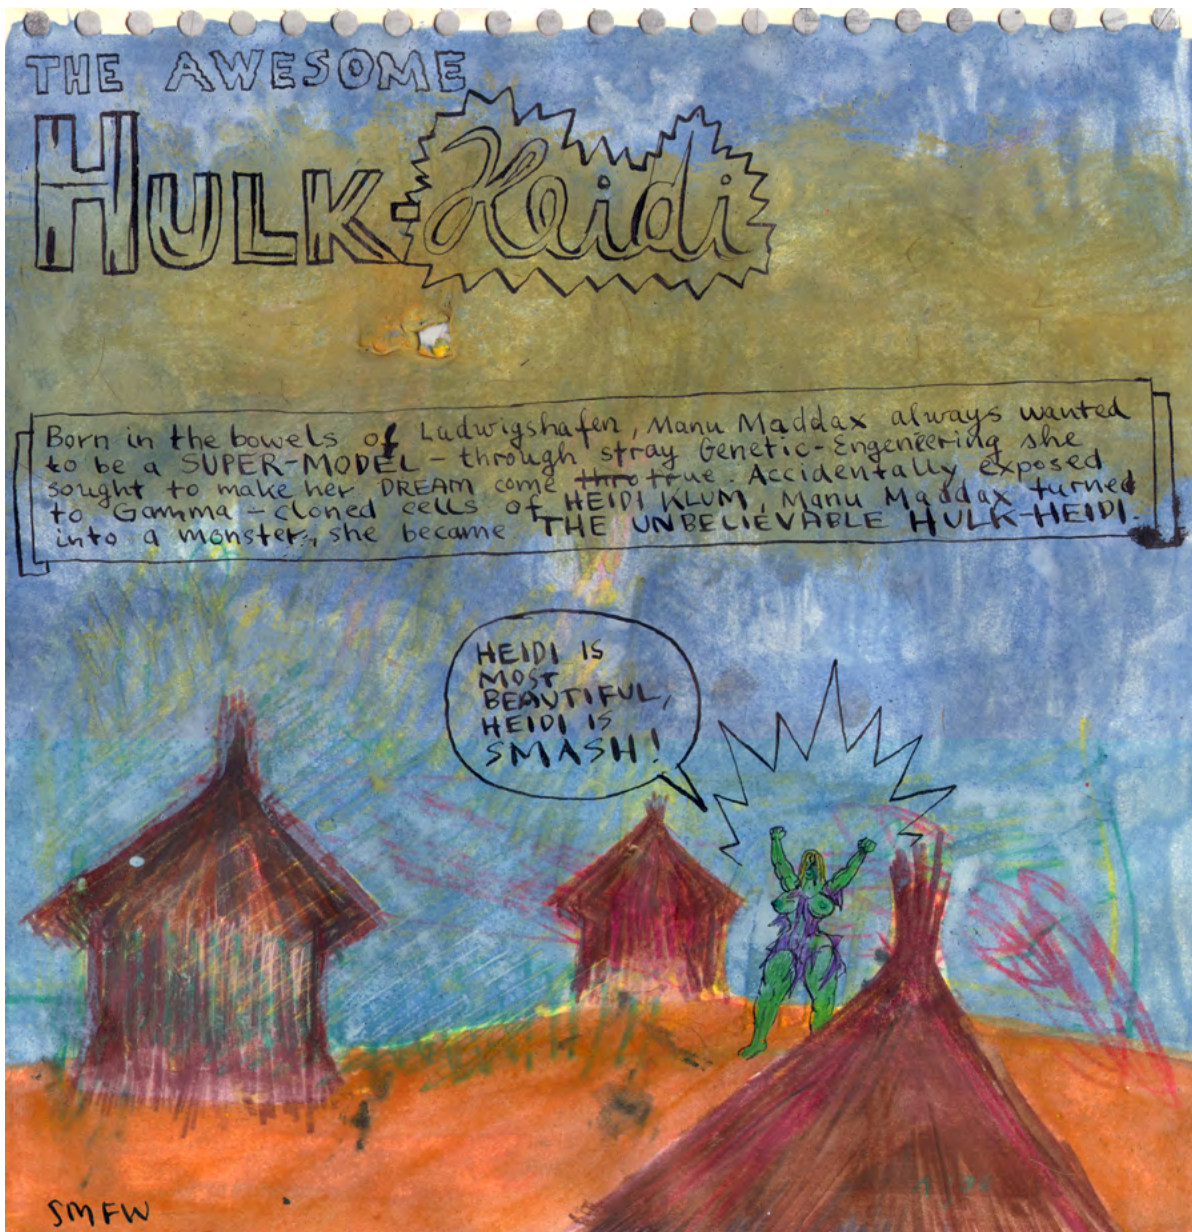 THE AWESOME
HULK-Heidi
Born in the bowels of Ludwigshafen, Manu Maddax always wanted
to be a SUPER-MODEL - through stray Genetic-Engeneering she
sought to make her DREAM come thro true. Accidentally exposed
to Gamma-cloned cells of HEIDI KLUM, Manu Maddax turned
into a monster, she became THE UNBELIEVABLE HULK-HEIDI.
HEIDI IS
MOST
BEAUTIFUL,
HEIDI IS
SMASH!
SMFW